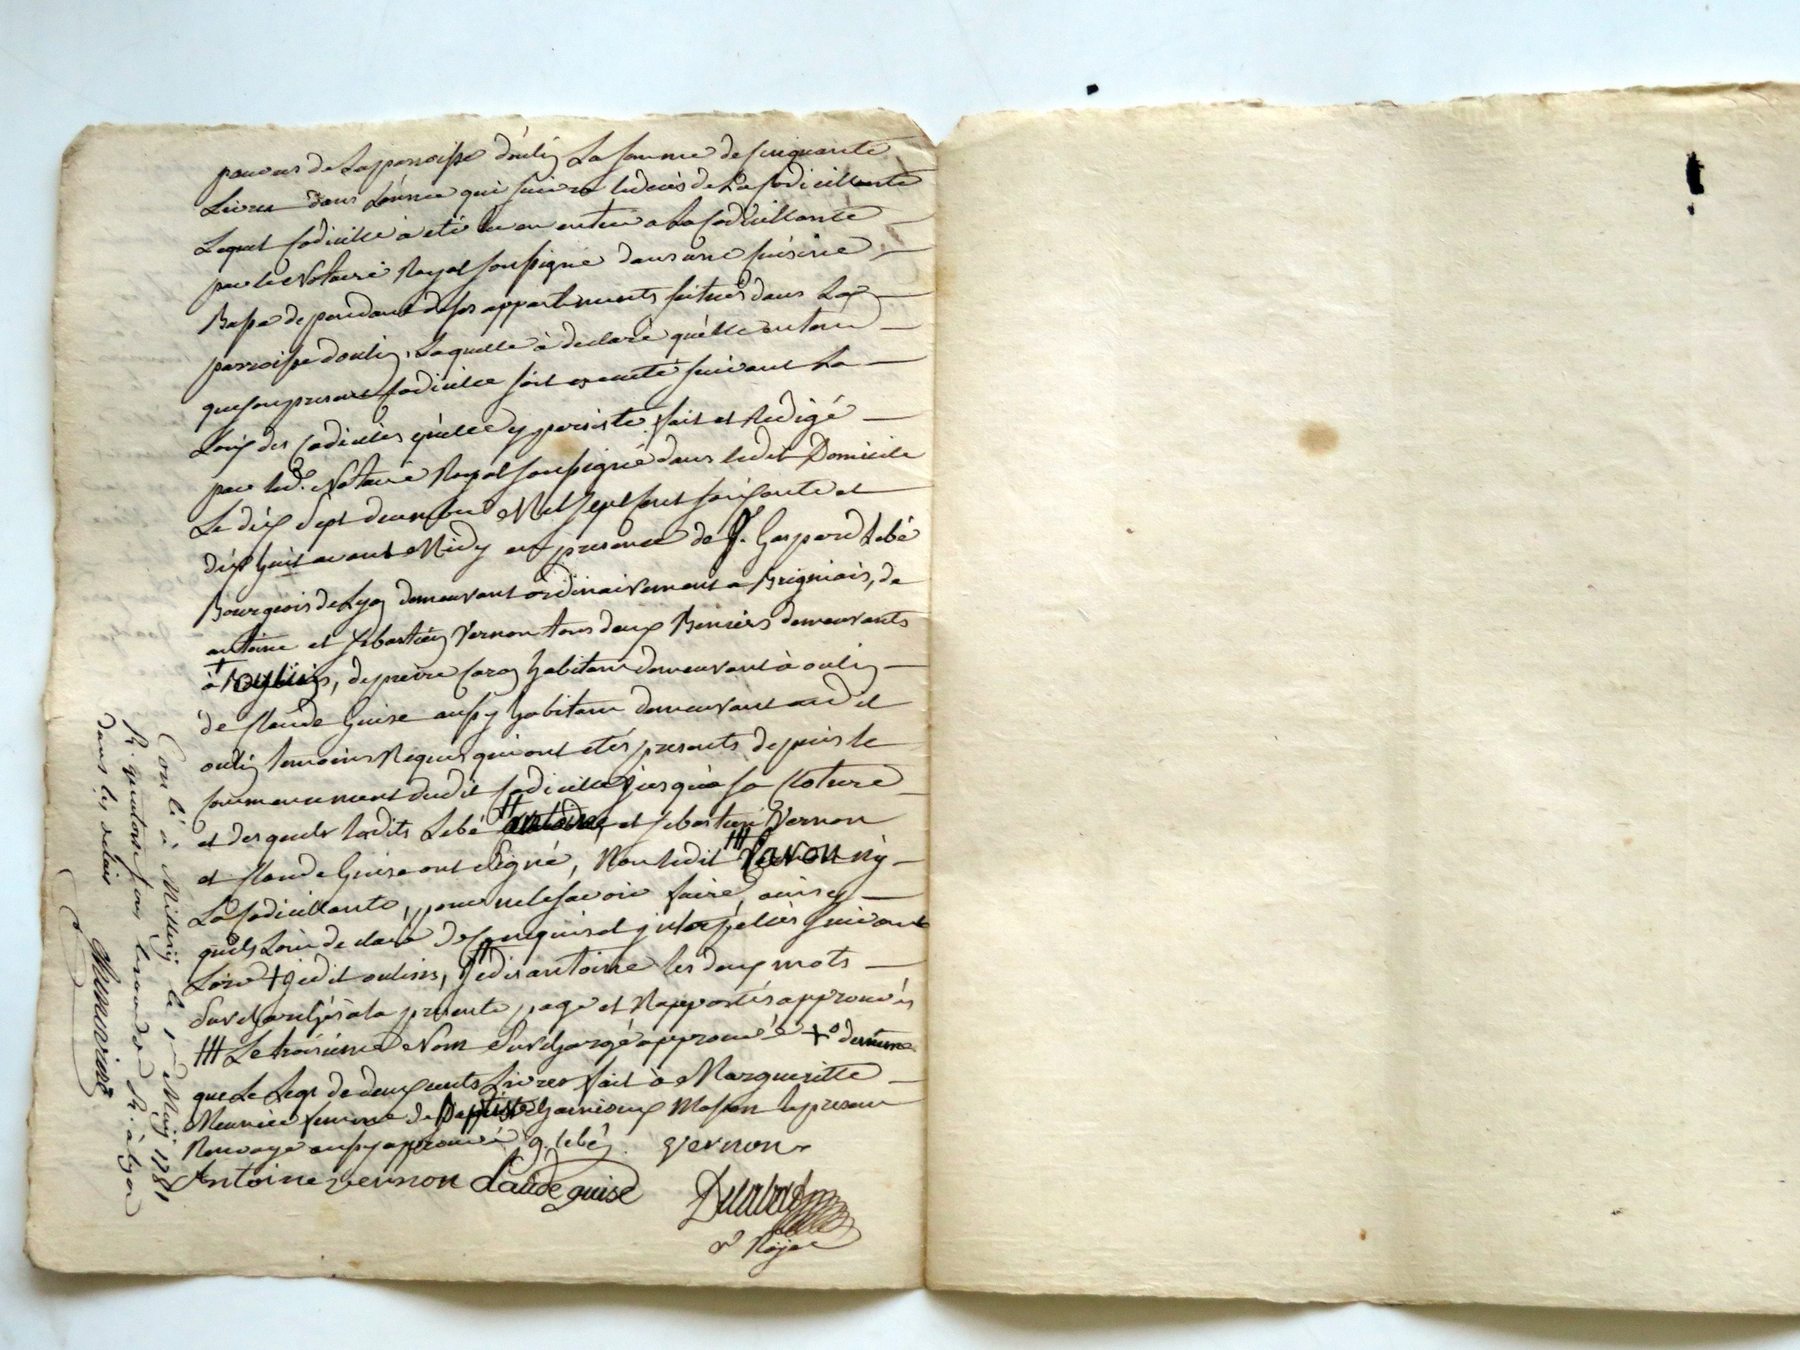 pauvres de la parroisse d'oulin La somme de cinquante
Livres dans L'année qui suivra le decès de La Codicillante
Lequel Codicille à eté lu en entier a La Codicillante
par le Notaire Royal soussigné dans une cuisine
Basse dependante de ses appartements situés dans La
parroisse d'oulin, Laquelle à declaré qu'elle entend
que son present Codicille soit executé suivant La
Loix des Codicilles qu'elle y persiste. fait et Redigé
par led. Notaire Royal soussigné dans ledit Domicile
Le dix sept decembre Mil sept cent soixante et
dix huit avant Midy en presence de S. Gaspard Lebé
Bourgeois de Lyon demeurant ordinairement a Brigniais, de
antoine et sebastien Vernon tous deux demeurants
à oulins, de pierre habitant demeurant à oulin
de Claude Guise aussy habitant demeurant audit
oulin temoins Requis qui ont etés presents depuis le
commancement dudit Codicille jusqu'a sa Cloture
et desquels lesdits Lebé # antoine et sebastien Vernon
et Claude Guise ont signé, Non ledit ny
La Codicillante, pour ne le savoir faire, ainsy
qu'ils L'ont declaré de ce enquis et interpellés suivant
L'ord + je dit oulins, # je dis antoine les deux mots
surchargés a la presente page et Rapportés approuvés
Le troisieme Nom surchargé approuvé +
que Le Legs de deux cents Livres fait à Margueritte
Meunier femme de Baptiste Masson le present
Renvoye aussy approuvé g. lebé. Vernon
Antoine vernon Claude guise
Con.lé à Millery le Mij 1781
R. quatorze sous
dans les delais